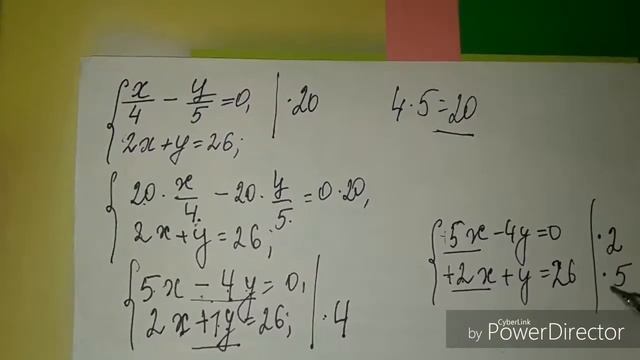 { x/4 - y/5 = 0, | · 20
2x + y = 26;
4 · 5 = 20
{ 20 · x/4 - 20 · y/5 = 0 · 20,
2x + y = 26;
{ 5x - 4y = 0, |
2x + 1y = 26; | · 4
{ +5x - 4y = 0 | · 2
+2x + y = 26 | · 5
CyberLink
by PowerDirector